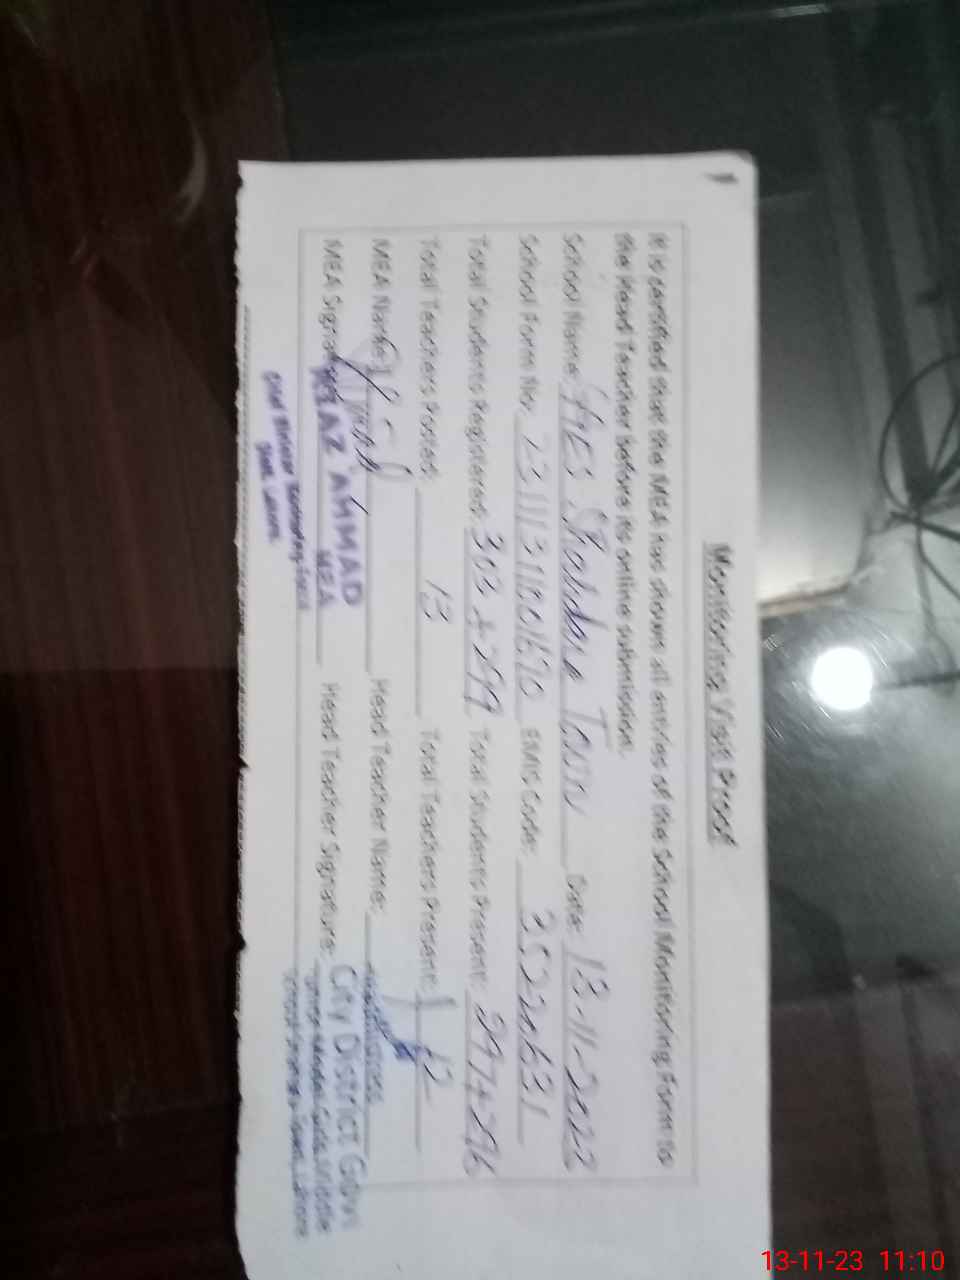 Monitoring Visit Proof
It is certified that the MEA has shown all entries of the School Monitoring Form to
the Head Teacher before its online submission.
School Name: Town Date: 13-11-2022
School Form No: EMIS Code: 35220631
Total Students Registered: 303 + 299 Total Students Present: 297+296
Total Teachers Posted: 13 Total Teachers Present: 12
MEA Name: Head Teacher Name:
MEA Signature: Head Teacher Signature:
AHMAD
MEA
City District Govt
13-11-23 11:10